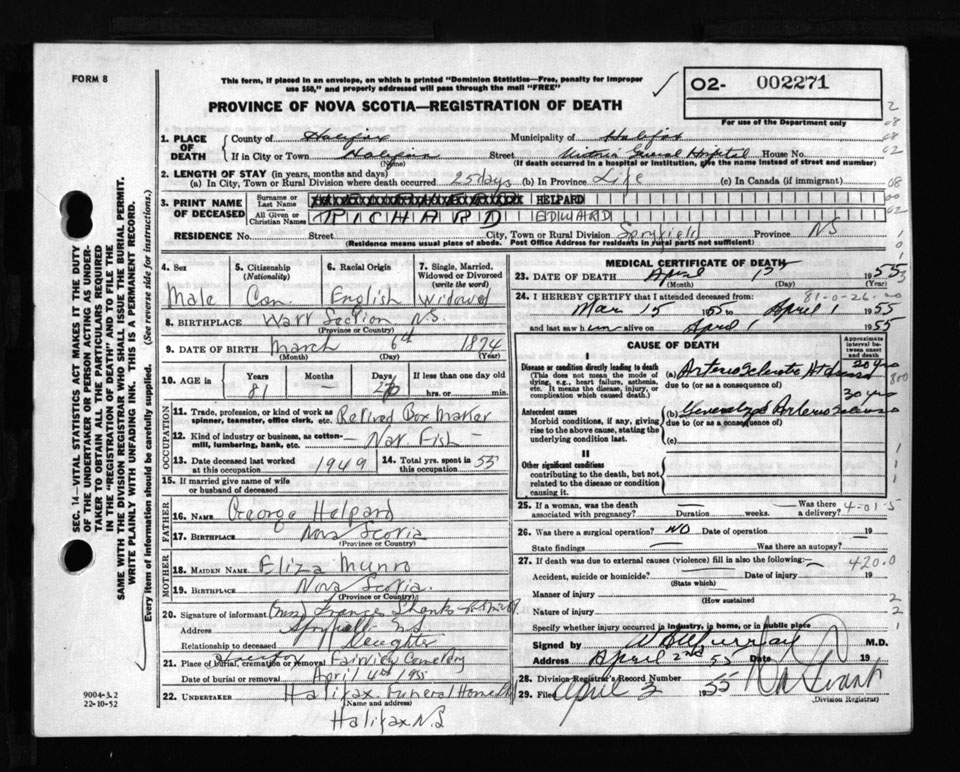 FORM 8
This form, if placed in an envelope, on which is printed "Dominion Statistics—Free, penalty for improper
use $50," and properly addressed will pass through the mail "FREE"
02- 002271
For use of the Department only
PROVINCE OF NOVA SCOTIA—REGISTRATION OF DEATH
1. PLACE OF DEATH County of Halifax Municipality of Halifax
If in City or Town Halifax (Name) Street Victoria General Hospital House No.
(If death occurred in a hospital or institution, give the name instead of street and number)
2. LENGTH OF STAY (in years, months and days)
(a) In City, Town or Rural Division where death occurred 25 days (b) In Province Life (c) In Canada (if immigrant)
3. PRINT NAME OF DECEASED Surname or Last Name HELPARD
All Given or Christian Names RICHARD EDWARD
RESIDENCE No. Street City, Town or Rural Division Spryfield Province NS
(Residence means usual place of abode. Post Office Address for residents in rural parts not sufficient)
4. Sex Male
5. Citizenship (Nationality) Can.
6. Racial Origin English
7. Single, Married, Widowed or Divorced (write the word) Widowed
8. BIRTHPLACE Section N.S.
(Province or Country)
9. DATE OF BIRTH March 6th 1874
(Month) (Day) (Year)
10. AGE in Years Months Days If less than one day old
81 — hrs. or min.
OCCUPATION
11. Trade, profession, or kind of work as spinner, teamster, office clerk, etc. Retired Box Maker
12. Kind of industry or business, as cotton-mill, lumbering, bank, etc. — Nat. Fish —
13. Date deceased last worked at this occupation 1949 14. Total yrs. spent in this occupation 55
15. If married give name of wife or husband of deceased
FATHER
16. NAME George Helpard
17. BIRTHPLACE Nova Scotia
(Province or Country)
MOTHER
18. MAIDEN NAME Eliza Munro
19. BIRTHPLACE Nova Scotia
(Province or Country)
20. Signature of informant (Mrs) Frances Shanks
Address Spryfield N.S
Relationship to deceased Daughter
21. Place of burial, cremation or removal Fairview Cemetery
Date of burial or removal April 4th 1955
22. UNDERTAKER Halifax Funeral Home
(Name and address)
Halifax N.S
9004-3.2
22-10-52
MEDICAL CERTIFICATE OF DEATH
23. DATE OF DEATH April 1st 1955
(Month) (Day) (Year)
81-0-26
24. I HEREBY CERTIFY that I attended deceased from:
Mar 15 1955 to April 1 1955
and last saw him alive on April 1 1955
CAUSE OF DEATH
Approximate interval between onset and death
I
Disease or condition directly leading to death
(This does not mean the mode of dying, e.g., heart failure, asthenia, etc. It means the disease, injury, or complication which caused death.)
(a) Arteriosclerotic Ht disease 20 yrs
due to (or as a consequence of)
Antecedent causes
Morbid conditions, if any, giving rise to the above cause, stating the underlying condition last.
(b) Generalized Arteriosclerosis 30 yrs
due to (or as a consequence of)
(c)
II
Other significant conditions
contributing to the death, but not related to the disease or condition causing it.
25. If a woman, was the death associated with pregnancy? Duration weeks. Was there a delivery?
4-01-5
26. Was there a surgical operation? NO Date of operation 19
State findings — Was there an autopsy?
27. If death was due to external causes (violence) fill in also the following:
420.0
Accident, suicide or homicide? (State which) Date of injury 19
Manner of injury (How sustained)
Nature of injury
Specify whether injury occurred in industry, in home, or in public place
Signed by M.D.
Address April 2nd 55 Date 19
28. Division Registrar's Record Number
29. Filed April 2 1955
(Division Registrar)
SEC. 14—VITAL STATISTICS ACT MAKES IT THE DUTY
OF THE UNDERTAKER OR PERSON ACTING AS UNDER-
TAKER TO OBTAIN ALL THE PARTICULARS REQUIRED
IN THE "REGISTRATION OF DEATH" AND TO FILE THE
SAME WITH THE DIVISION REGISTRAR WHO SHALL ISSUE THE BURIAL PERMIT.
WRITE PLAINLY WITH UNFADING INK. THIS IS A PERMANENT RECORD.
Every item of information should be carefully supplied. (See reverse side for instructions.)